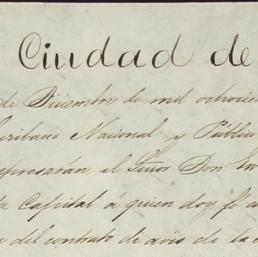 Ciudad de
de Diciembre de mil ochocien
scribano Nacional y Público
epresarán, el Señor Don En
a Capital á quien doy fé
del contrato de avio de la